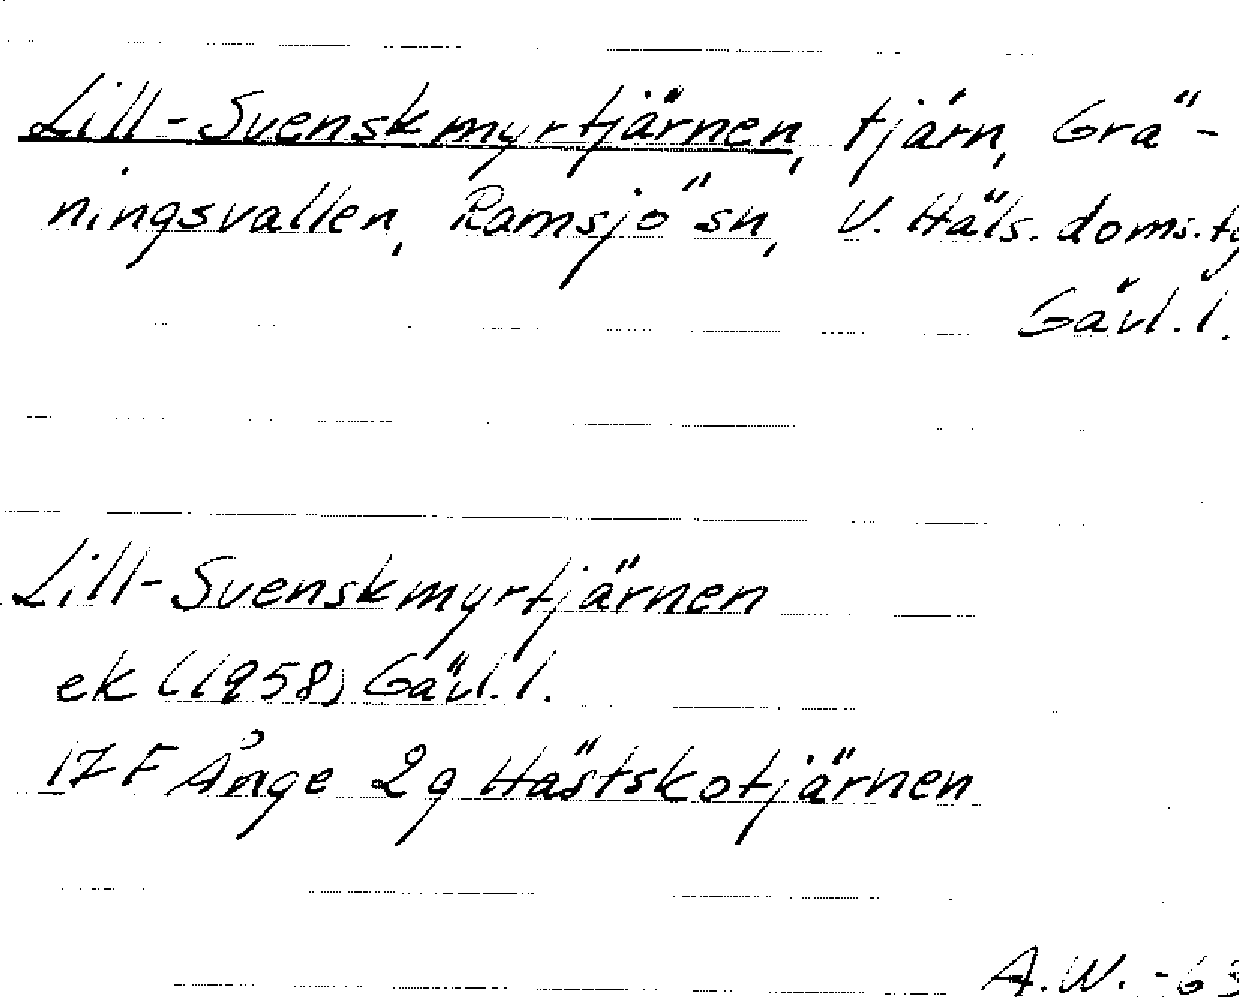 Lill-Svenskmyrtjärnen, tjärn, Grä-
ningsvallen, Ramsjö sn, V. Häls. doms.
Gävl. l.
Lill-Svenskmyrtjärnen
ek (1958) Gävl. l.
17 F Ånge 2g Hästskotjärnen
A.W. -63